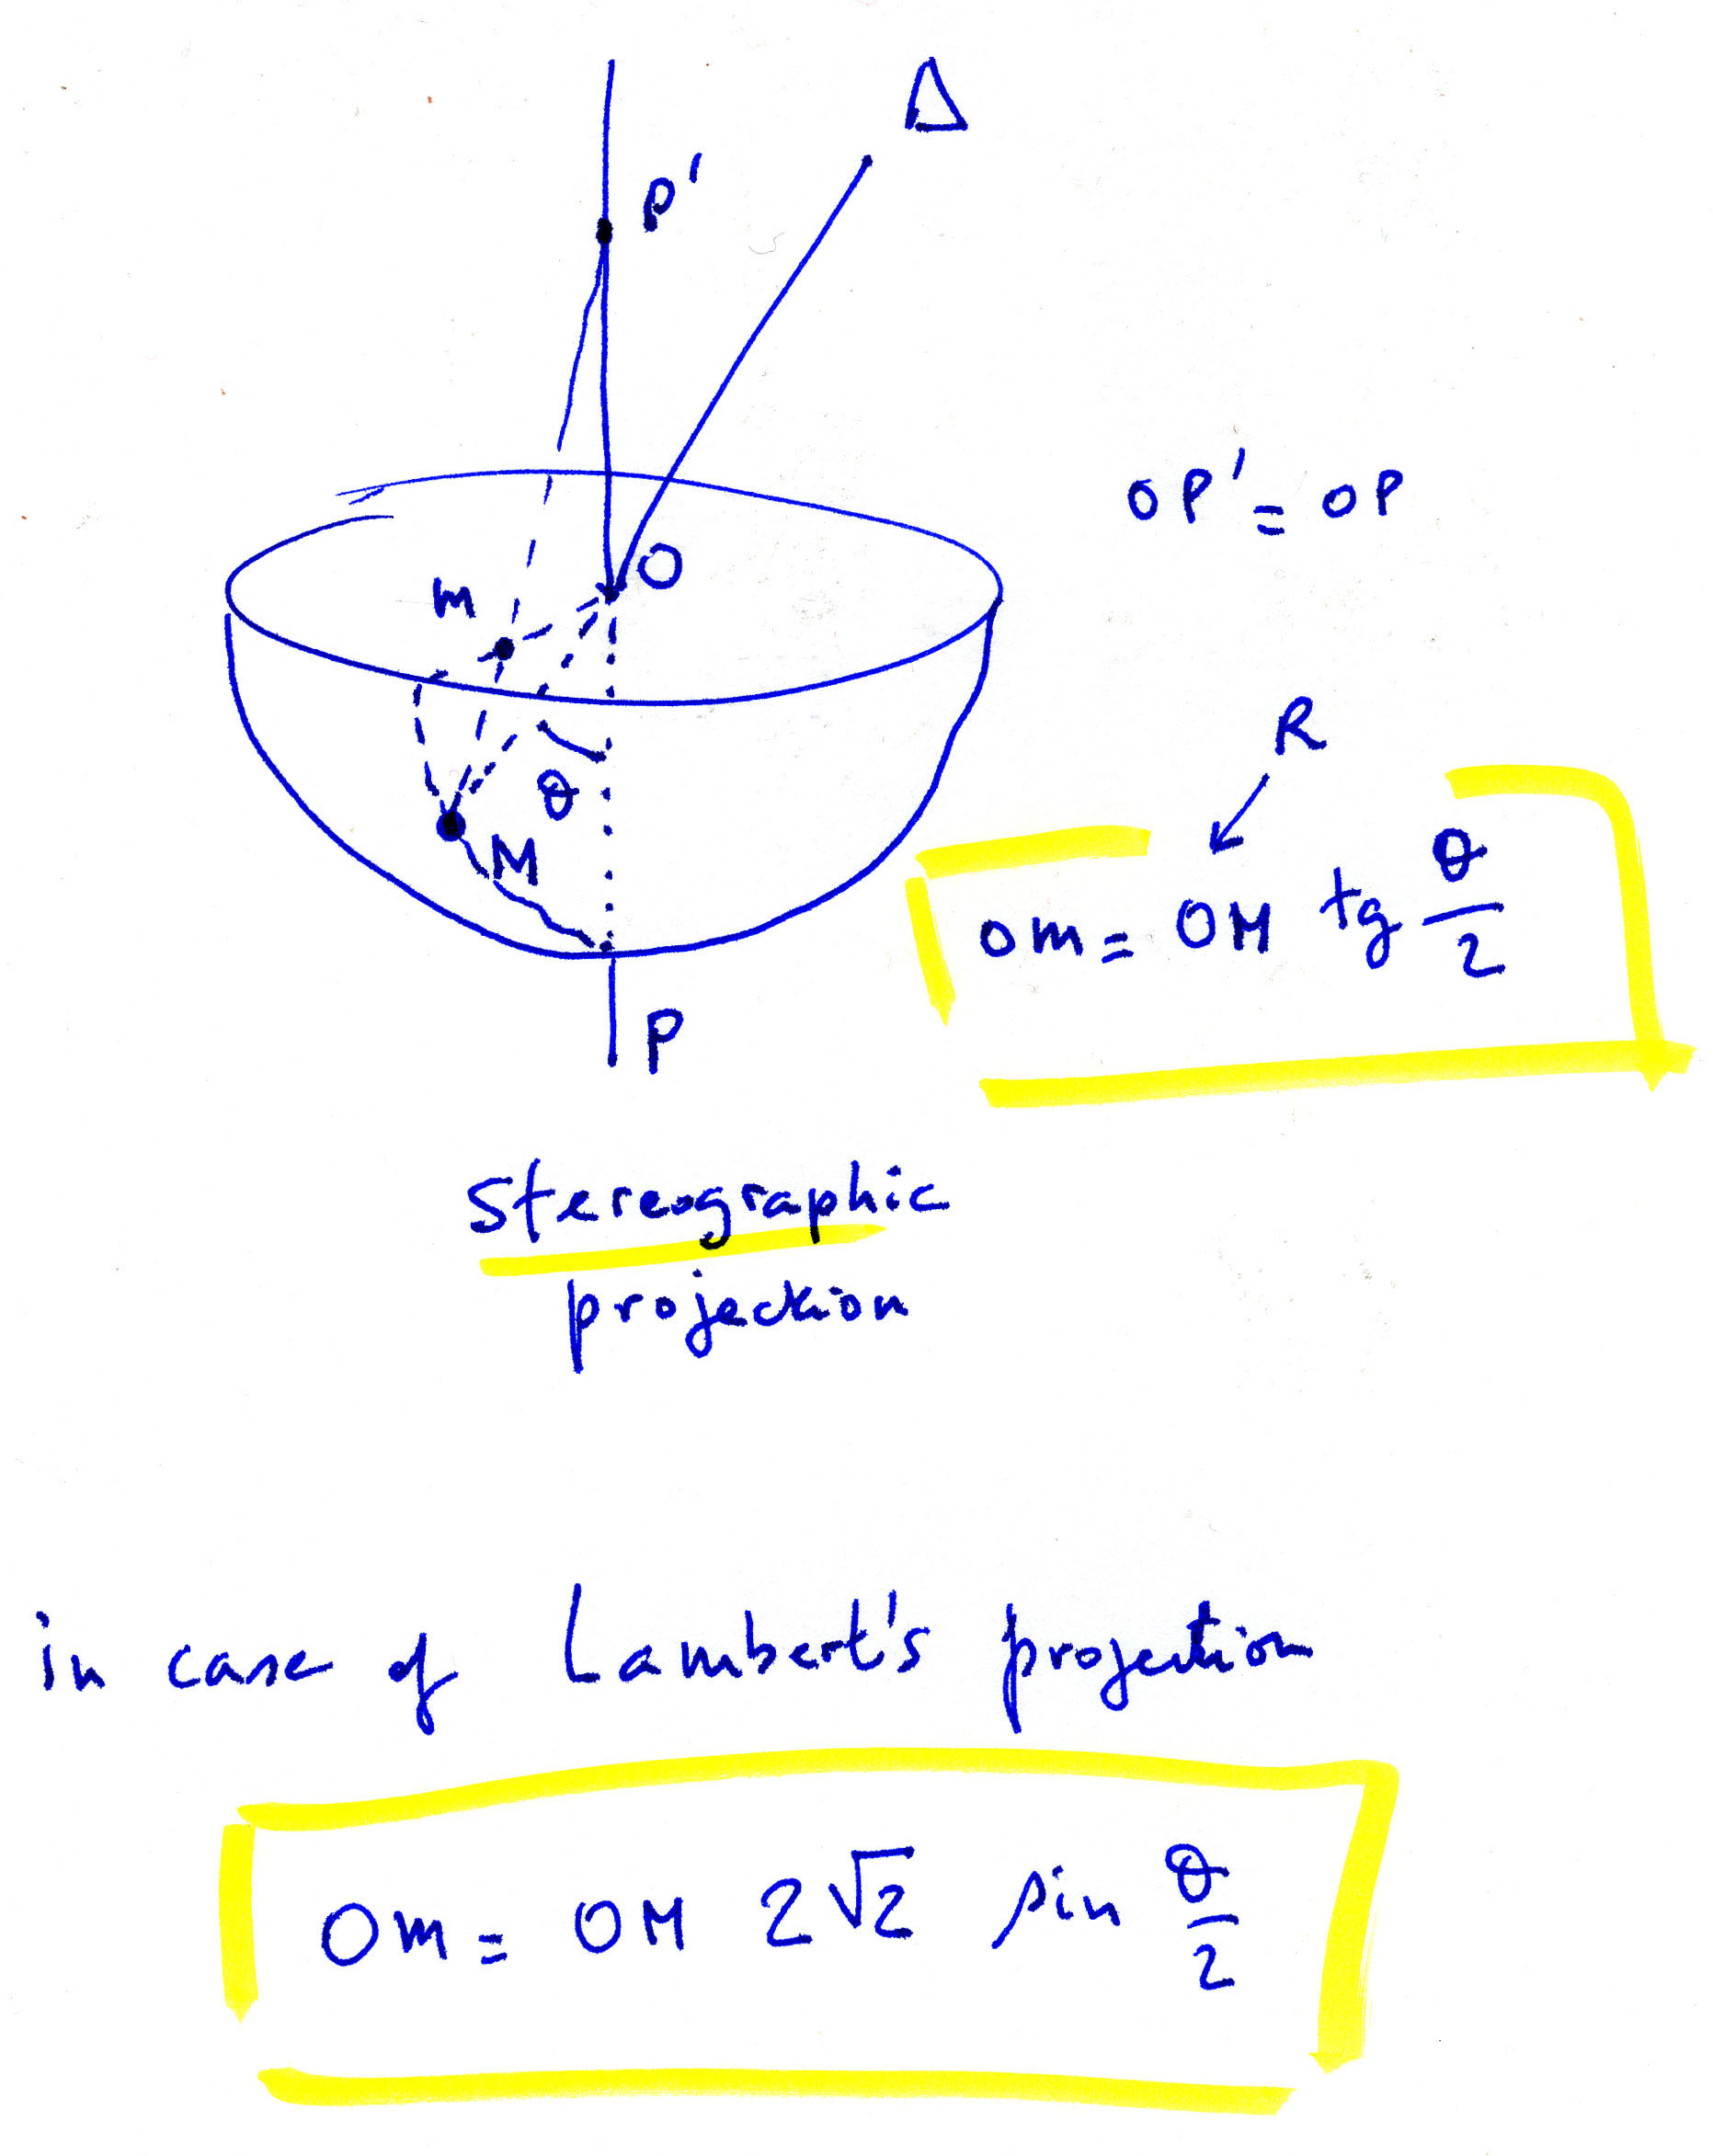 Δ
P'
O
OP' = OP
m
R
θ
M
om = OM tg θ/2
P
stereographic
projection
in case of Lambert's projection
Om = OM 2√2 sin θ/2